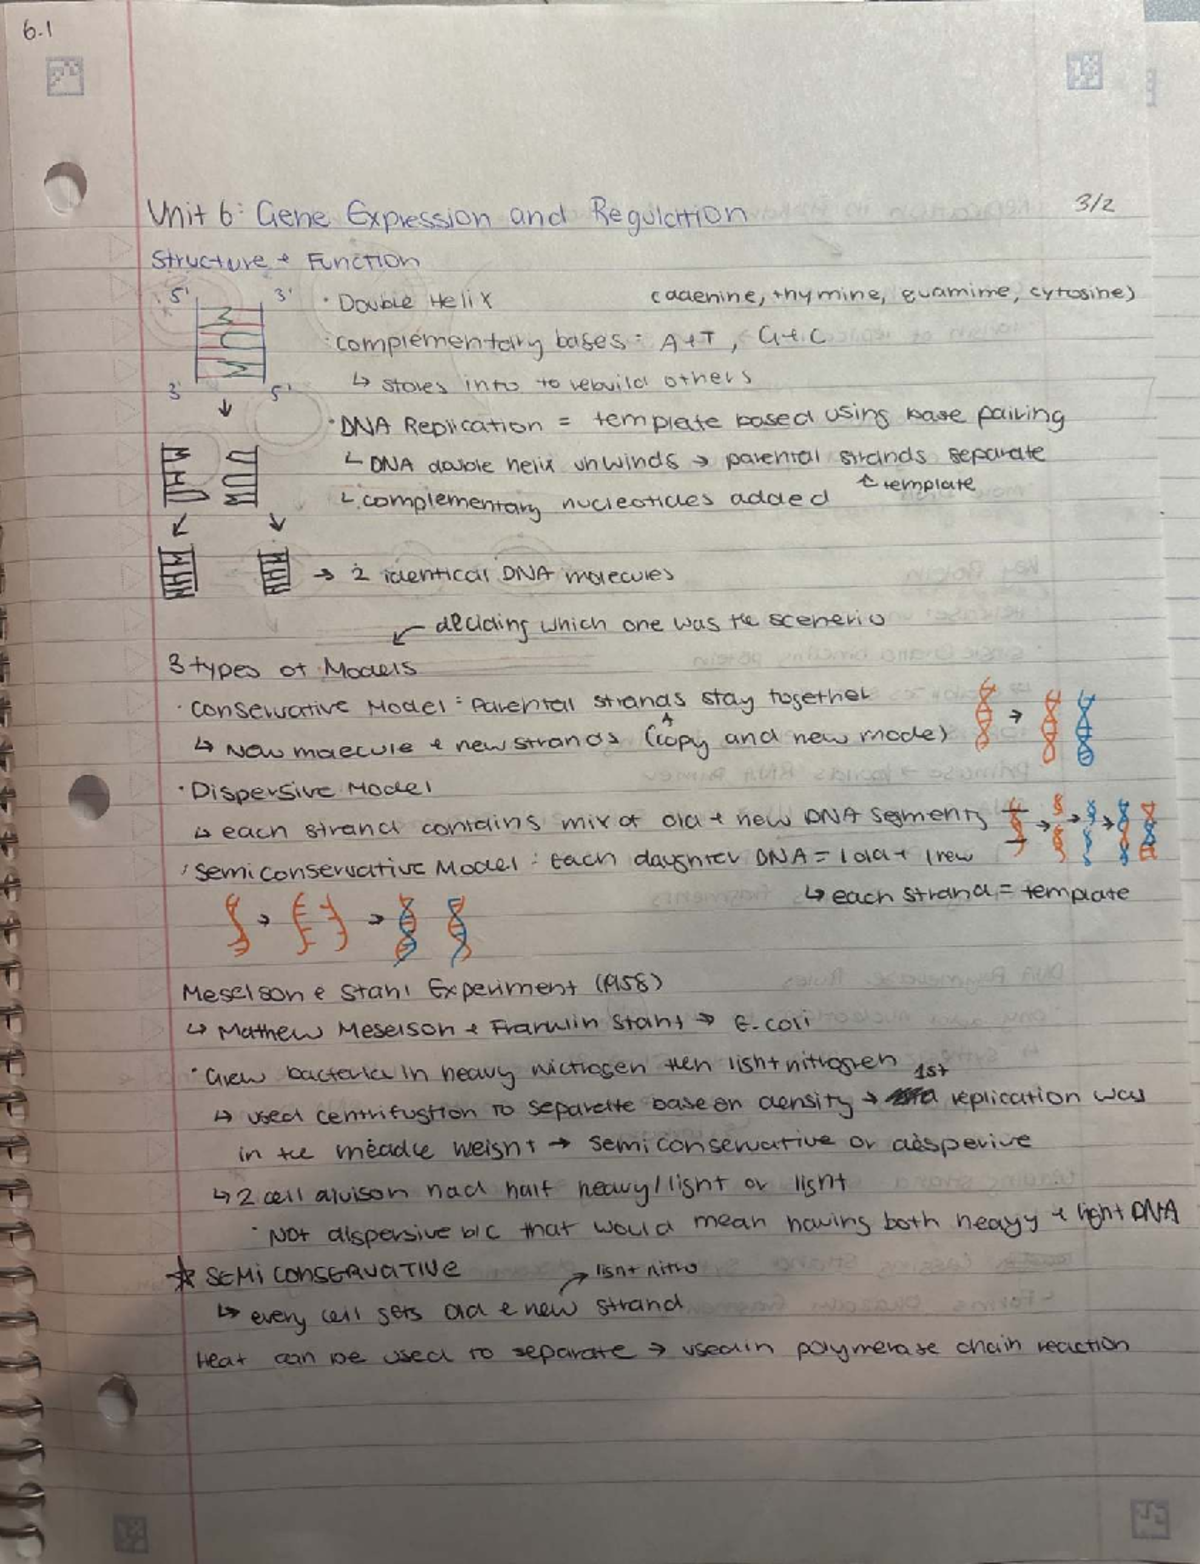 6.1
Unit 6: Gene Expression and Regulation 3/2
Structure + Function
5' 3'
• Double Helix (adenine, thymine, guamime, cytosine)
• complementary bases: A+T, G+C
↳ stores info to rebuild others
3' 5'
• DNA Replication = template based using base pairing
↳ DNA double helix unwinds → parental strands separate
↳ complementary nucleotides added ↑ template
→ 2 identical DNA molecules
deciding which one was the scenerio
3 types of Models
• Conservative Model: Parental strands stay together
↳ New molecule + new strands (copy and new mode)
• Dispersive Model
↳ each strand contains mix of old + new DNA segments
• Semiconservative Model: Each daughter DNA = 1 old + 1 new
↳ each strand = template
Meselson & Stahl Experiment (1958)
↳ Mathew Meselson + Franklin Stahl → E. coli
• Grew bacteria in heavy nictrogen then light nitrogen
↳ used centrifugtion to separate base on density → 1st replication was
in the meadle weight → semiconservative or desperive
↳ 2 cell divison had half heavy/light or light
• Not dispersive b/c that would mean having both heavy + light DNA
☆ SEMI CONSERVATIVE
light nitro
↳ every cell gets old & new strand
Heat can be used to separate → used in polymerase chain reaction